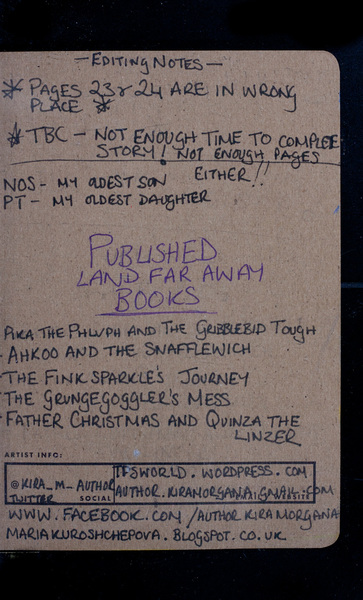 — EDITING NOTES —
* PAGES 23 & 24 ARE IN WRONG
PLACE *
* TBC - NOT ENOUGH TIME TO COMPLETE
STORY! NOT ENOUGH PAGES
EITHER!!
NOS - MY OLDEST SON
PT - MY OLDEST DAUGHTER
PUBLISHED
LAND FAR AWAY
BOOKS
AIKA THE PHLUPH AND THE GRIBBLEBID TOUGH
- AHKOO AND THE SNAFFLEWICH
- THE FINK SPARKLE'S JOURNEY
- THE GRUNGEGOGGLER'S MESS
- FATHER CHRISTMAS AND QUINZA THE
LINZER
ARTIST INFO:
TFSWORLD.WORDPRESS.COM
@KIRA_M_AUTHOR AUTHOR.KIRAMORGANA@GMAIL.COM
TWITTER SOCIAL
WWW.FACEBOOK.COM/AUTHORKIRAMORGANA
MARIAKUROSHCHEPOVA.BLOGSPOT.CO.UK